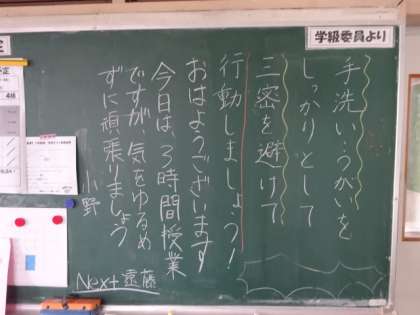 学級委員より
手洗い・うがいを
しっかりとして
三密を避けて
行動しましょう!
おはようございます
今日は、3時間授業
ですが、気をゆるめ
ずに頑張りましょう
小野
Next 遠藤